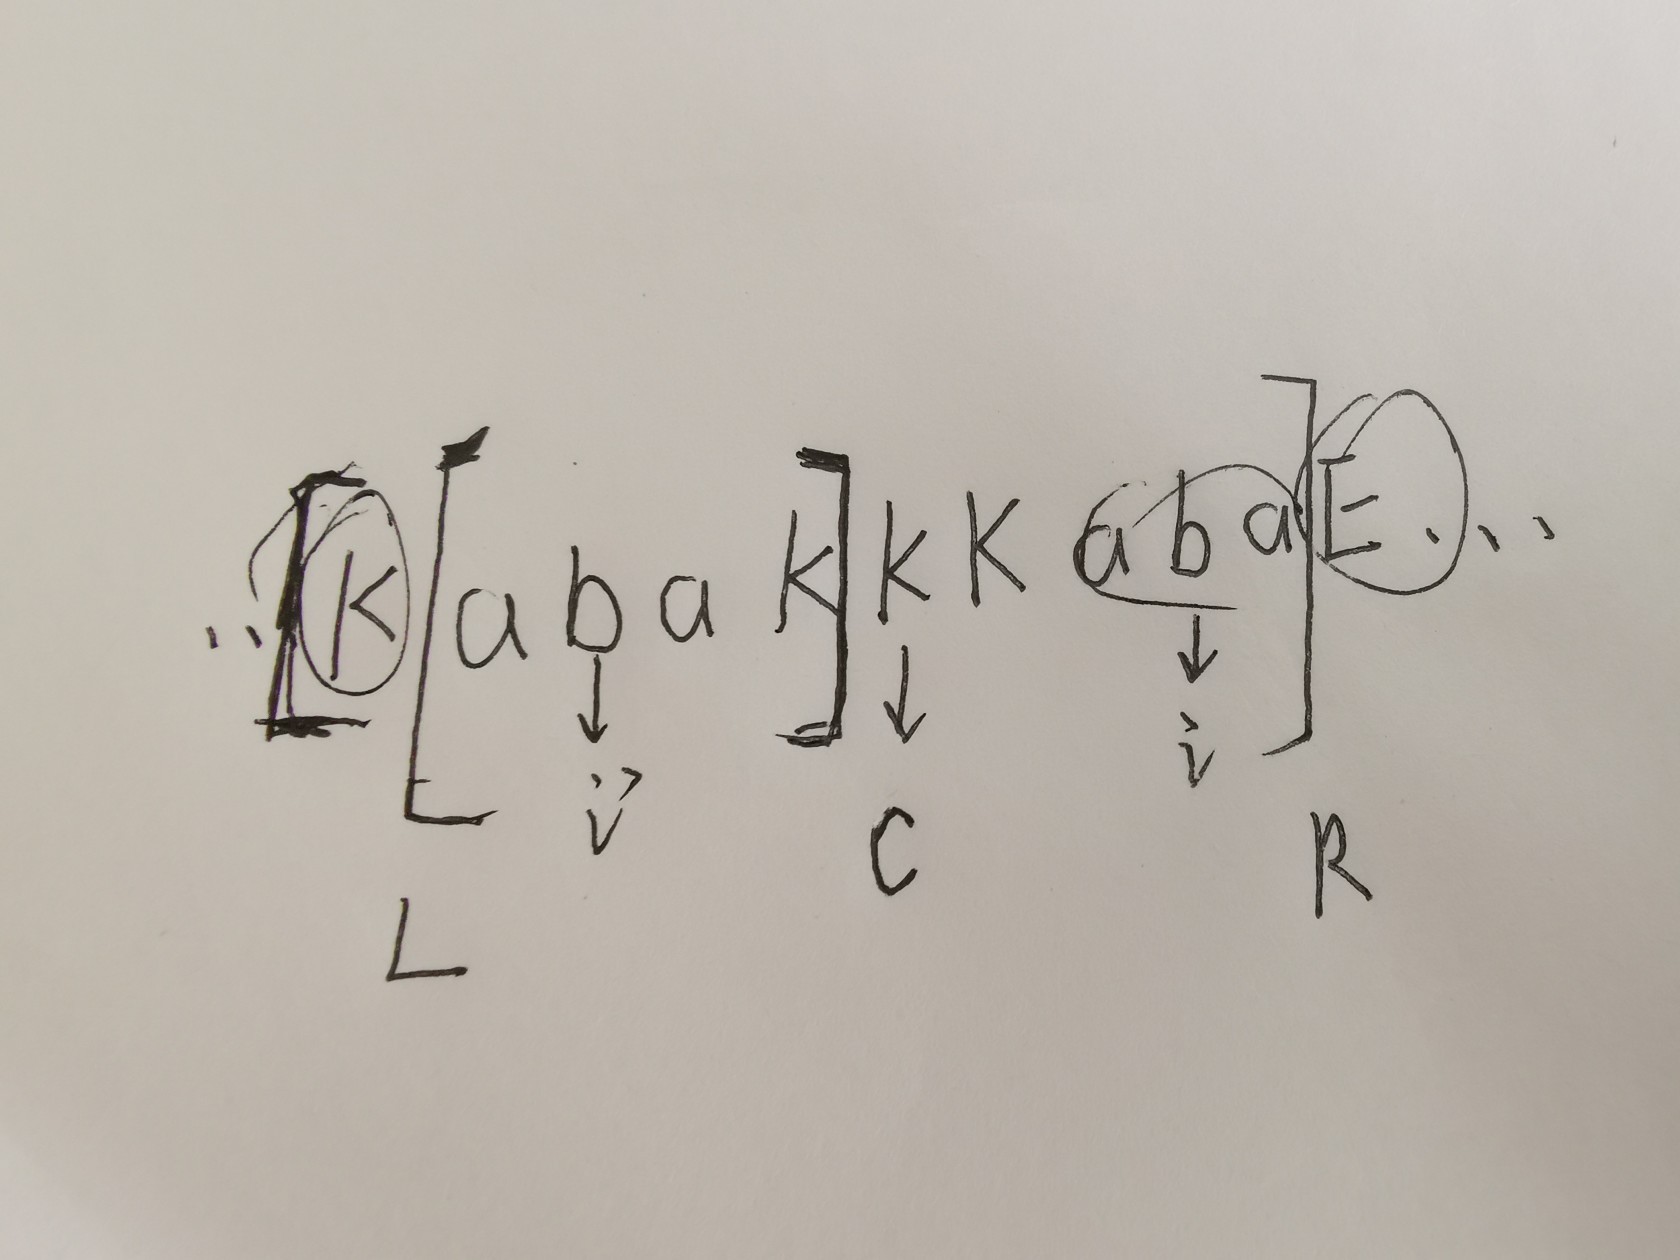 ..[K[abak]kKaba]E...
i' C i
L R